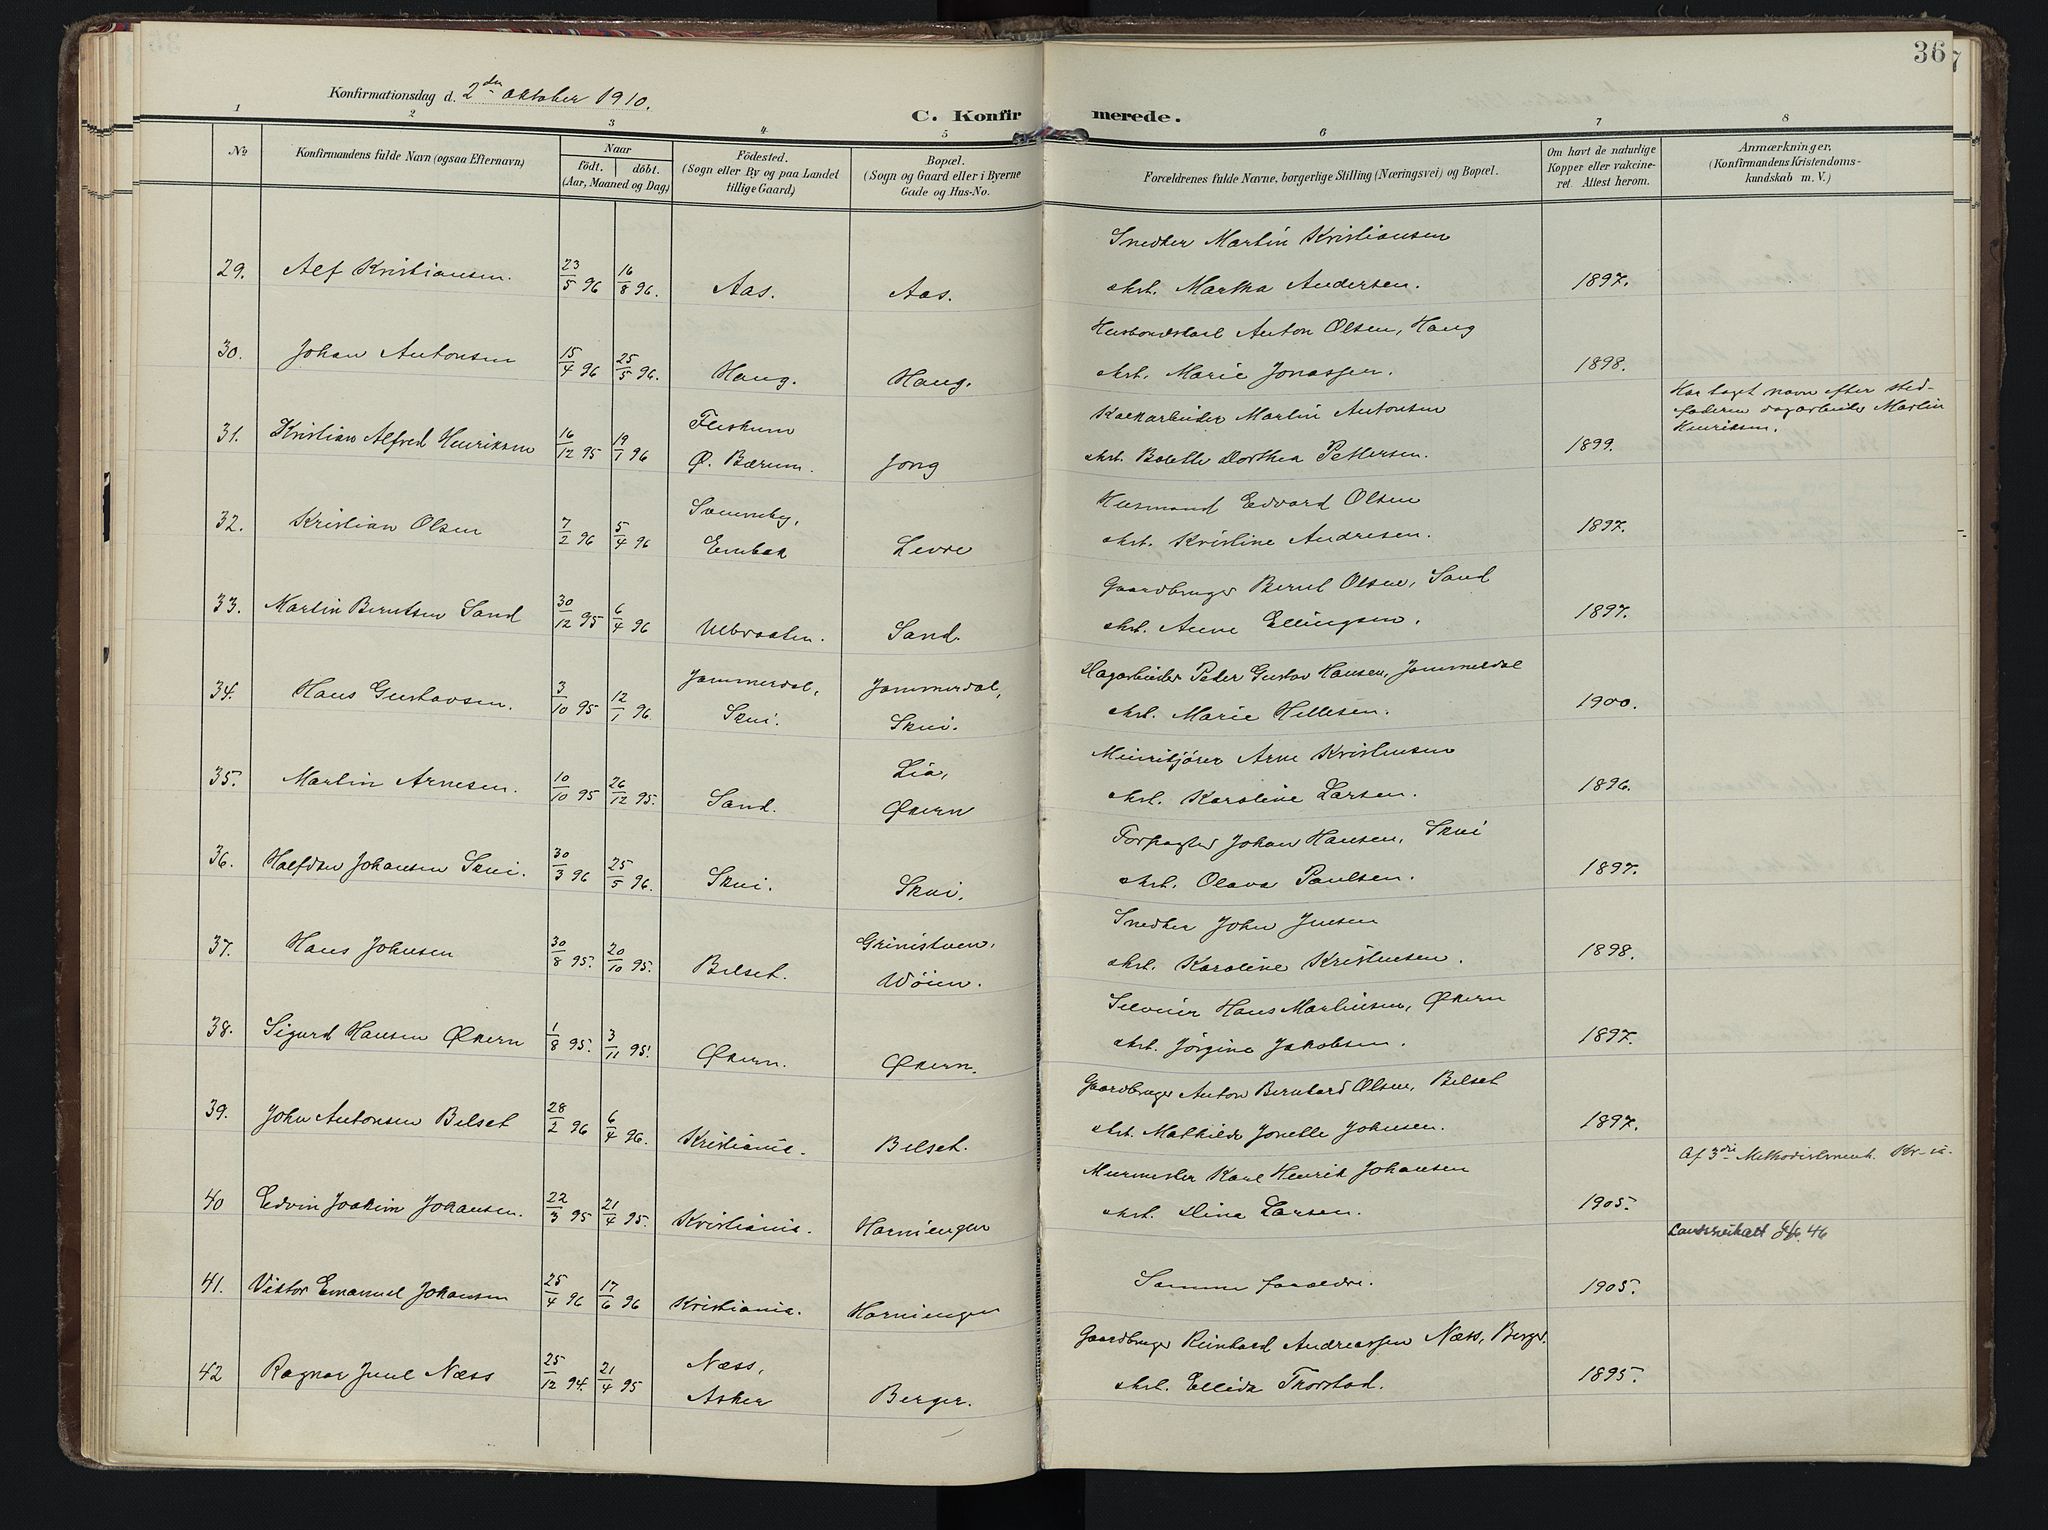 36
Konfirmationsdag d. 2den oktober 1910.
C. Konfirmerede.
1 2 3 4 5 6 7 8
No
Konfirmandens fulde Navn (ogsaa Efternavn)
Naar
födt. döbt.
(Aar, Maaned og Dag)
Födested.
(Sogn eller By og paa Landet
tillige Gaard)
Bopæl.
(Sogn og Gaard eller i Byerne
Gade og Hus-No.
Forældrenes fulde Navne, borgerlige Stilling (Næringsvei) og Bopæl.
Om havt de naturlige
Kopper eller vakcine-
ret. Attest herom.
Anmærkninger.
(Konfirmandens Kristendoms-
kundskab m. V.)
Snedker Martin Kristiansen
29. Alf Kristiansen. 23/5 96 16/8 96. Aas. Aas. Martha Andersen. 1897.
Husbondskarl Anton Olsen, Haug
30. Johan Antonsen 15/4 96 25/5 96. Haug. Haug. Marie Jonassen. 1898.
Har taget navn efter sted-
faderen dagarbeider Martin
Henriksen.
Kalkarbeider Martin Antonsen
31. Kristian Alfred Henriksen 16/12 95 19/1 96 Fleskum
Ø. Bærum. Jong Bolette Dorthea Pettersen. 1899.
Husmand Edvard Olsen
32. Kristian Olsen 7/2 96 5/4 96 Levre Kristine Andresen. 1897.
Gaardbruger Bernt Olsen, Sand
33. Martin Berntsen Sand 30/12 95 6/4 96 Ulvraaten. Sand. Anne Ellingsen. 1897.
Dagarbeider Peder Gustav Hansen, Jammerdal
34. Hans Gustavsen. 3/10 95 12/1 96 Jammerdal, Skui. Jammerdal, Skui. Marie Hillesen. 1900.
Arne Kristensen
35. Martin Arnesen. 10/10 95 26/12 95. Sand. Lia, Økern Karoline Larsen. 1896.
Forpagter Johan Hansen, Skui
36. Halfdan Johansen Skui. 30/3 96 25/5 96. Skui. Skui. Olava Paulsen. 1897.
Snedker John Jensen
37. Hans Johnsen 30/8 95. 20/10 95. Belset. Grinistuen, Wöien. Karoline Kristensen. 1898.
Selveier Hans Martinsen, Økern
38. Sigurd Hansen Økern 1/8 95. 3/11 95. Økern. Økern. Jörgine Jakobsen. 1897.
Gaardbruger Anton Bernhard Olsen, Belset
39. John Antonsen Belset 28/2 96 6/4 96. Kristiania. Belset. Mathilde Jonette Johnsen. 1897.
Af 3die Methodistmenh. Kr-ia.
Murmester Karl Henrik Johansen
40 Edvin Joakim Johansen. 22/3 95 21/4 95. Kristiania. Horniengen Dina Larsen. 1905.
46
41. Viktor Emanuel Johansen 25/4 96 17/6 96 Kristiania. Horniengen Samme forældre. 1905.
Gaardbruger Reinhard Andreassen Næss, Berger.
42 Ragnar Juul Næss 25/12 94. 21/4 95 Næss, Asker Berger. Ellida Thorstad. 1895.